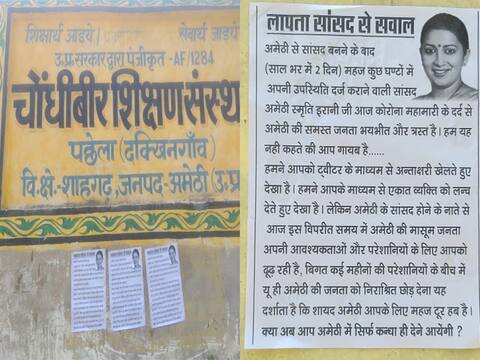 शिक्षार्थ आइये
सेवार्थ जाइये
उ.प्र.सरकार द्वारा पंजीकृत-AF/1284
चोंधीबीर शिक्षण संस्थ
पछेला (दक्खिनगाँव)
वि.क्षे.-शाहगढ़,जनपद-अमेठी (उ.प्र
लापता सांसद से सवाल
अमेठी से सांसद बनने के बाद
(साल भर में 2 दिन) महज कुछ घण्टों में
अपनी उपस्थिति दर्ज कराने वाली सांसद
अमेठी स्मृति इरानी जी आज कोरोना महामारी के दर्द से
अमेठी की समस्त जनता भयभीत और त्रस्त है। हम यह
नही कहते की आप गायब है......
हमने आपको ट्वीटर के माध्यम से अन्ताक्षरी खेलते हुए
देखा है। हमने आपके माध्यम से एकात व्यक्ति को लन्च
देते हुए देखा है। लेकिन अमेठी के सांसद होने के नाते से
आज इस विपरीत समय में अमेठी की मासूम जनता
अपनी आवश्यकताओं और परेशानियों के लिए आपको
ढूढ रही है, बिगत कई महीनो की परेशानियों के बीच में
यू ही अमेठी की जनता को निराश्रित छोड़ देना यह
दर्शाता है कि शायद अमेठी आपके लिए महज टूर हब है।
क्या अब आप अमेठी में सिर्फ कन्धा ही देने आयेंगी ?